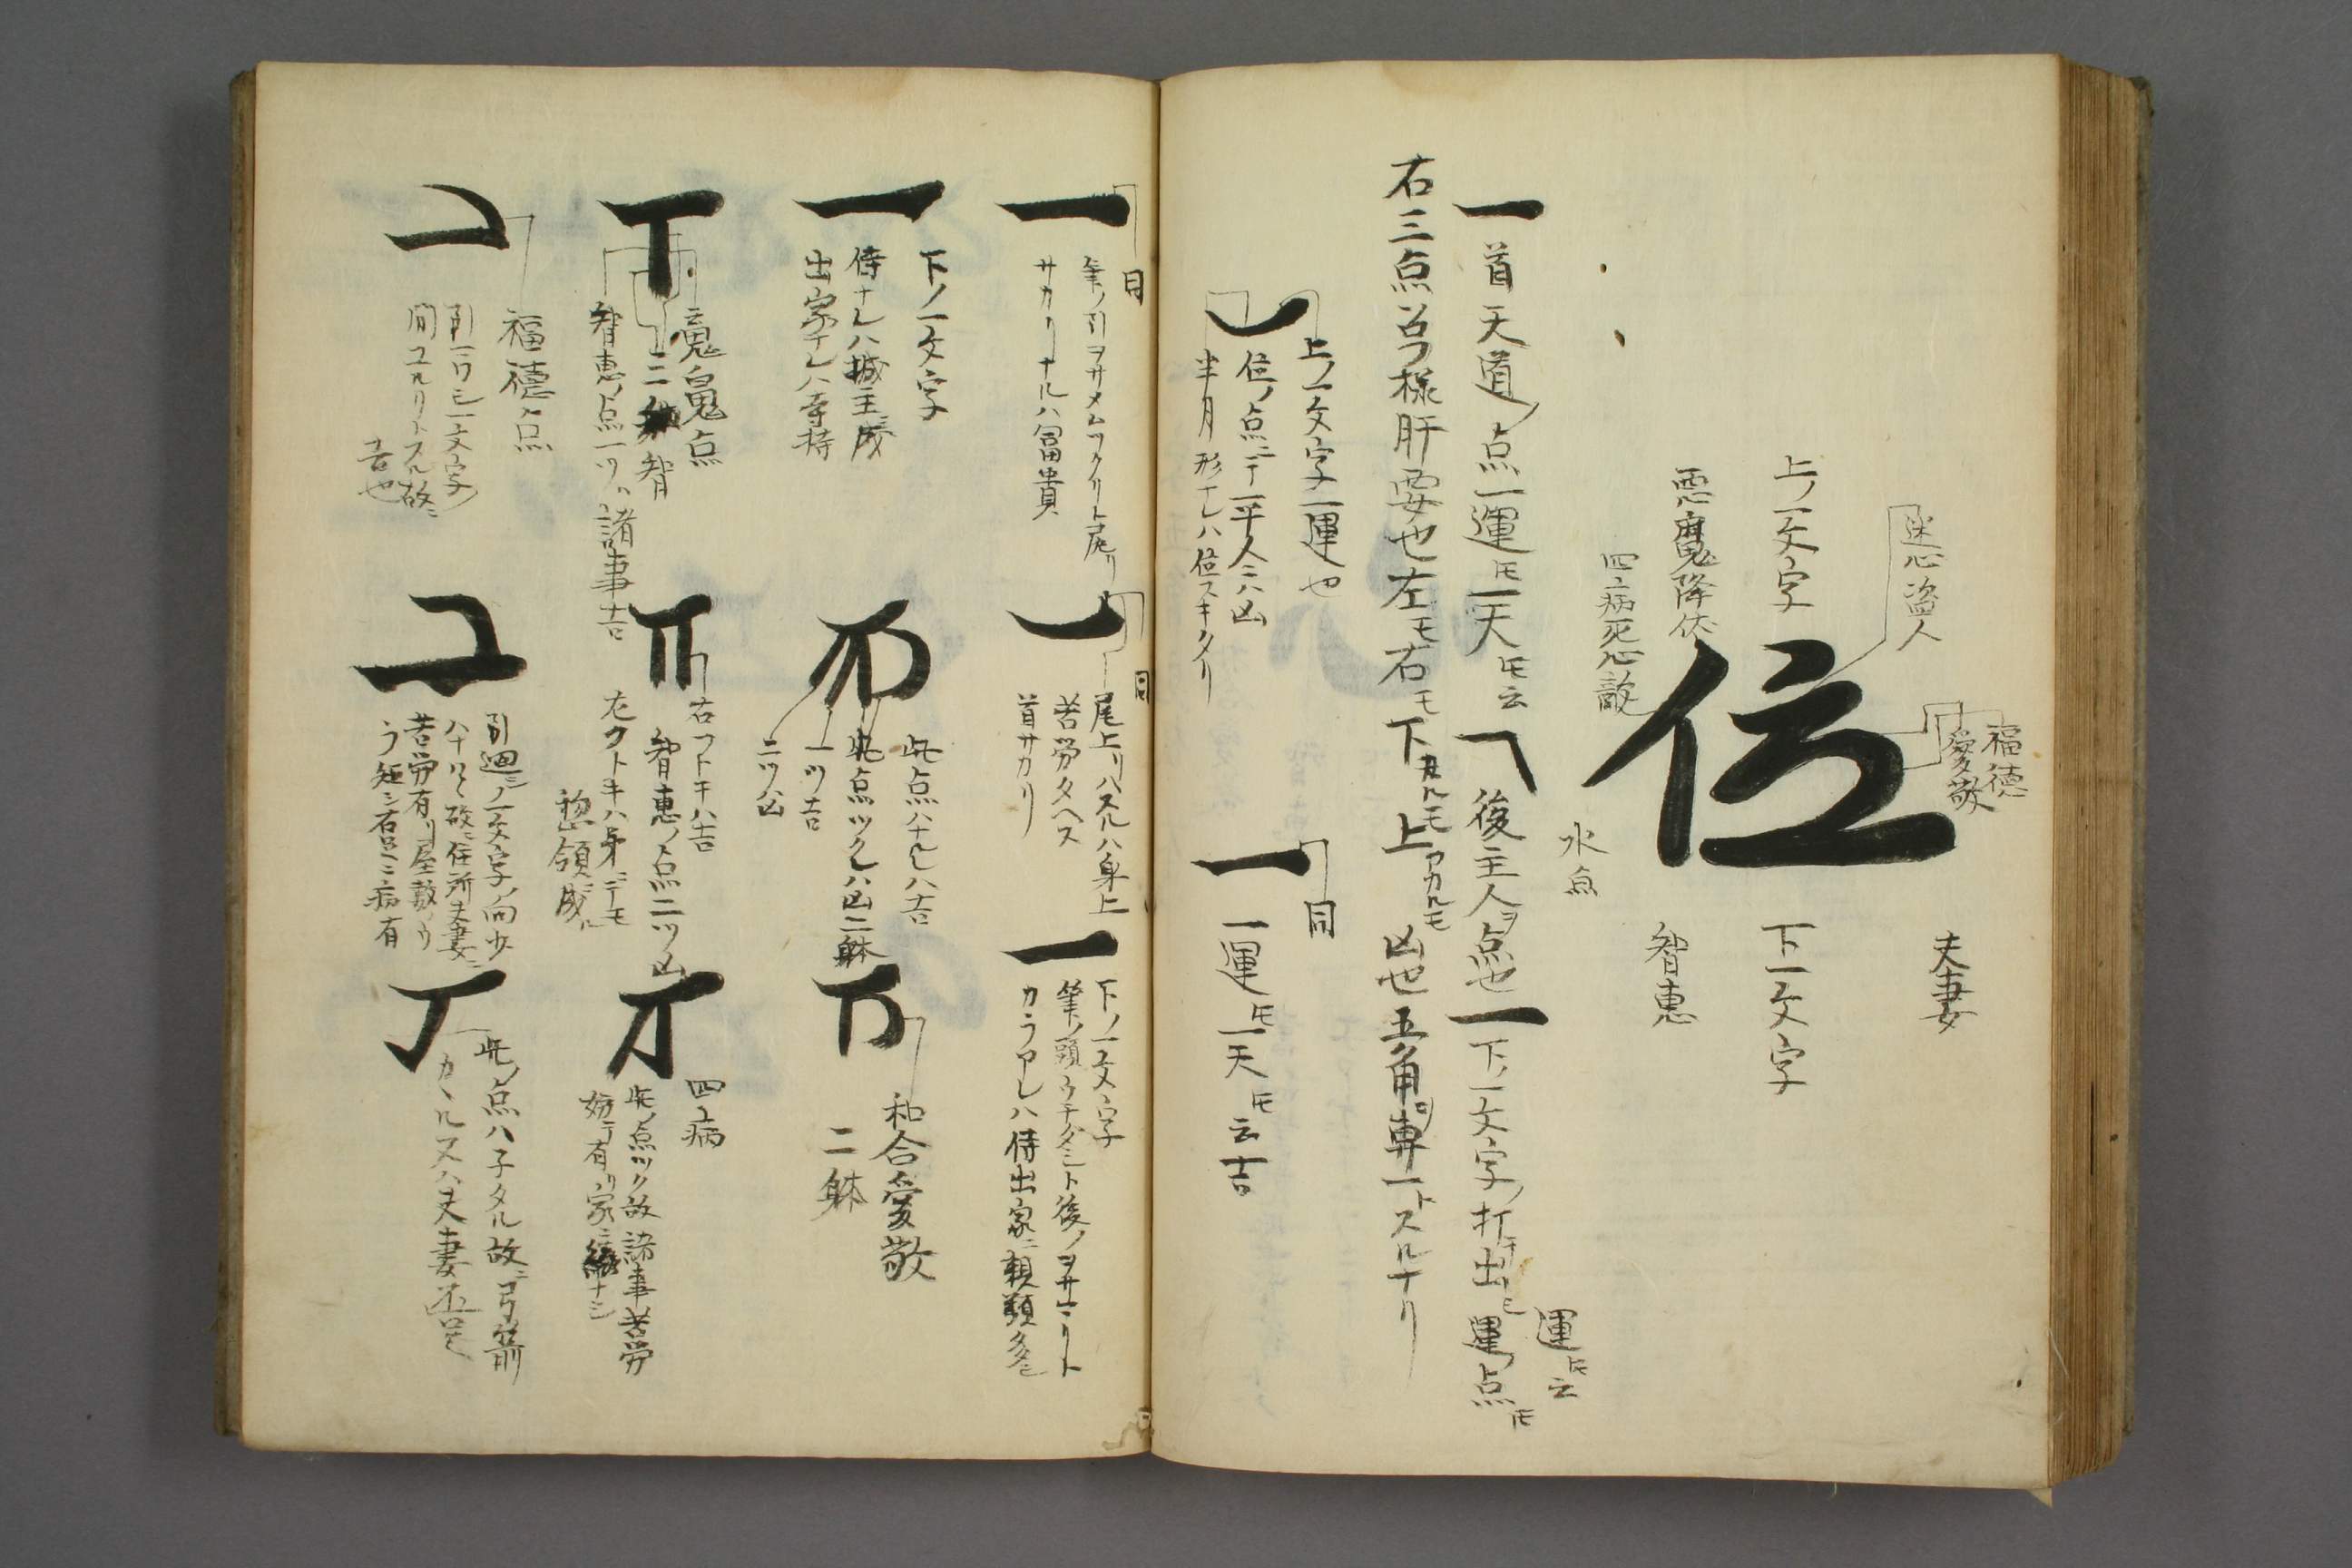 迷心盗人
福徳
愛敬
夫妻
上ノ一文字
位
下一文字
悪魔降伏
四病死心敵
水魚
智恵
一 首天道ノ点一運モ一天モ云
後主人ヲ点也
一 下ノ一文字ノ打出モ運ノ点モ
運モ云
右三点
様肝要也左モ右モ下カルモ上アカルモ凶也五角専一トスルナリ
上ノ一文字一運也
位ノ点ニテ平人ニハ凶
半月形ナレハ位スキタリ
一 同
一運モ一天モ云吉
一 同
筆ノ引ヲサメムツクリト尾リ
サカリナルハ冨貴
一 同
尾上リハスルハ身上
苦労タヘス
首サカリ
一 下ノ一文字
筆ノ頭ウチダミト後ノヲサマリト
カラアレハ侍出家ニ頼
多シ
一 下ノ一文字
侍ナレハ城主ニ成
出家ナレハ寺持
此点ハナレハ吉
此点ツクレハ凶二躰
一ツ吉
二ツ凶
和合愛敬
二躰
魔鬼点
二
智
智恵ノ点一ツハ諸事吉
右フトキハ吉
智恵ノ点二ツ凶
左フトキハ弟ニテモ
惣領ニ成ル
四病
此ノ点ツク故諸事苦労
妨ケ有リ家ニ
ナシ
福徳ノ点
引一ワシ一文字ノ
間ユルリトスル故ニ
吉也
引廻シノ一文字ノ間少
ハナルヽ故ニ住所夫妻ニ
苦労有リ屋敷カ
ラ短シ右
ニ病有
此ノ点ハ子タル故ニ弓箭
カヽルヌハ夫妻